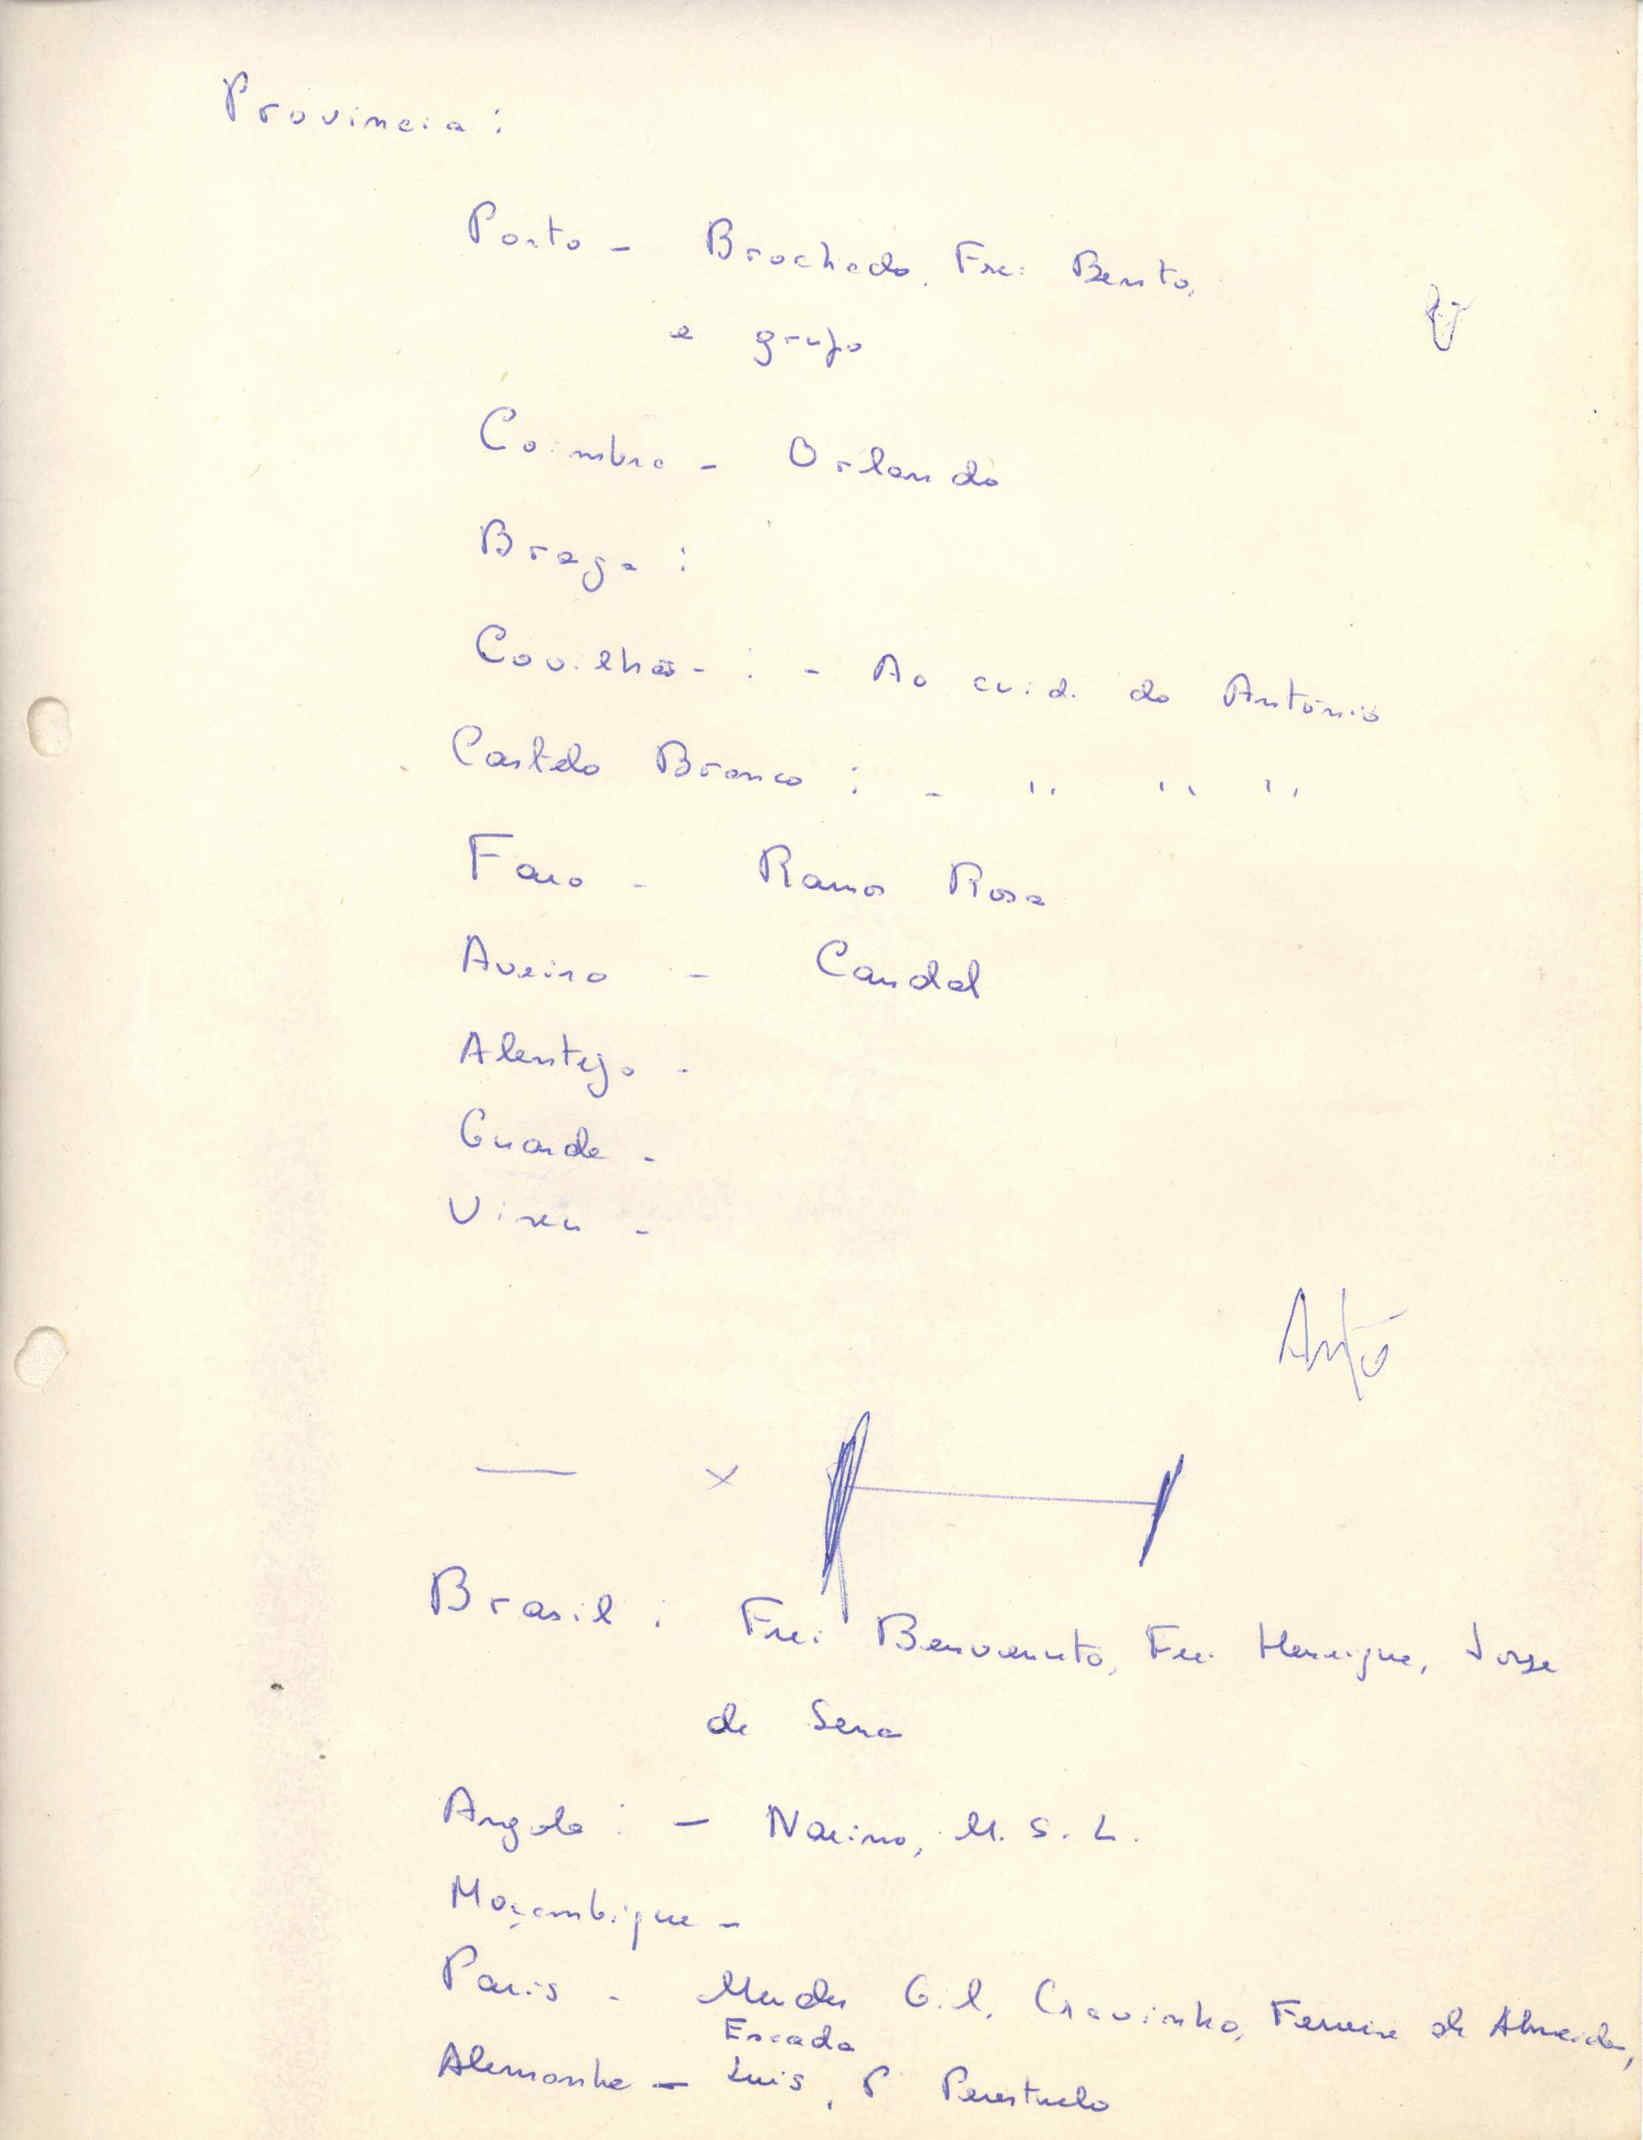 Provincia:
Porto - Brochado, Frei Bento,
e grupo
Coimbra - Orlando
Braga:
Covilhã - : - Ao cuid. do António
Castelo Branco : - " " "
Faro - Ramos Rosa
Aveiro - Candal
Alentejo -
Guarda -
Viseu -
Antó
x
Brasil : Frei Benvenuto, Frei Henrique, Jorge
de Sena
Angola : - M. S. L.
Moçambique -
Paris - Mendes Gil, Cravinho, Ferreira de Almeida,
Encada
Alemanha - Luis, P. Perestrelo